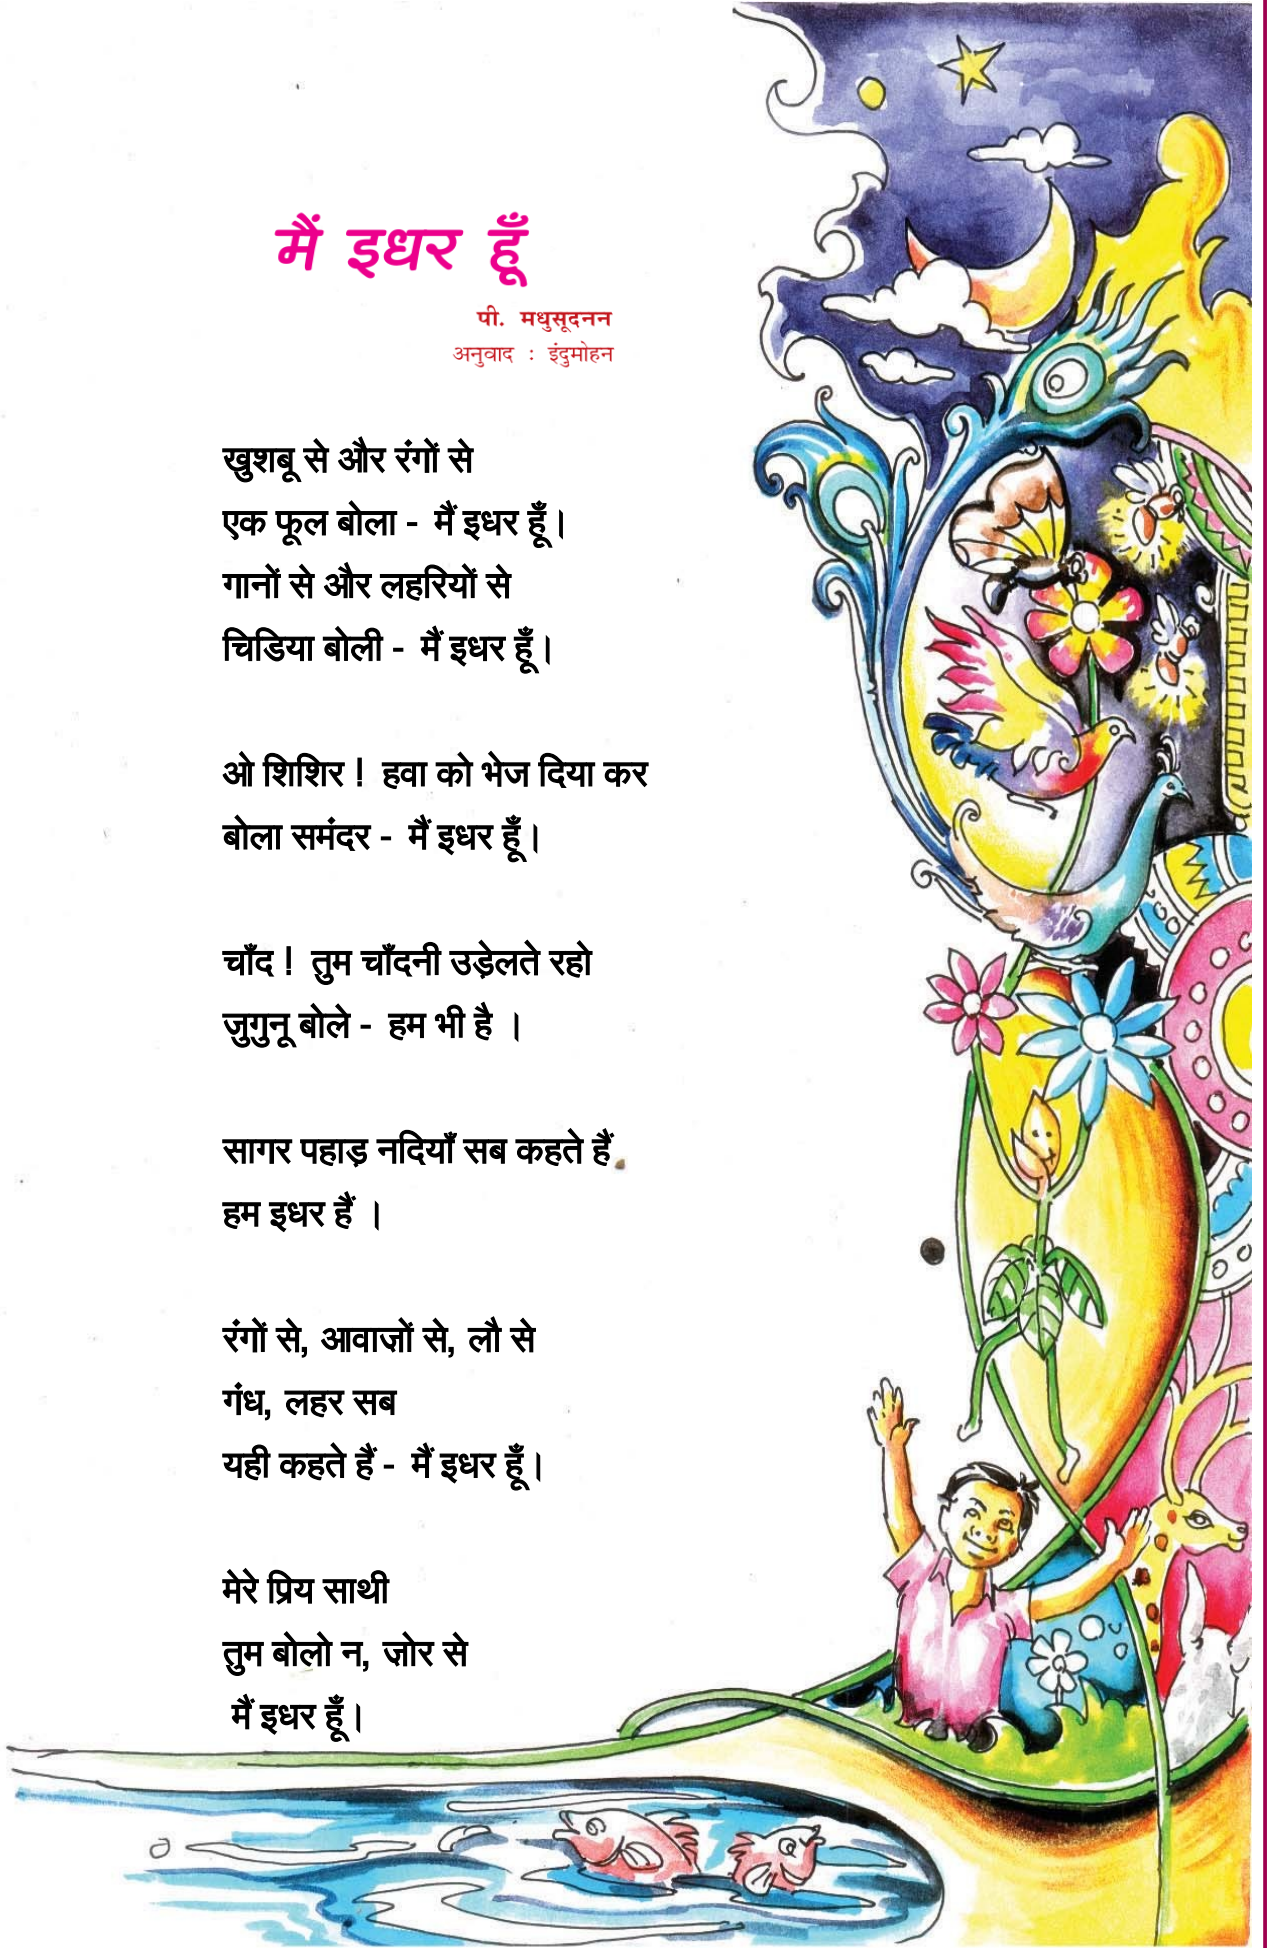 मैं इधर हूँ
पी. मधुसूदनन
अनुवाद : इंदुमोहन
खुशबू से और रंगों से
एक फूल बोला - मैं इधर हूँ।
गानों से और लहरियों से
चिडिया बोली - मैं इधर हूँ।
ओ शिशिर ! हवा को भेज दिया कर
बोला समंदर - मैं इधर हूँ।
चाँद ! तुम चाँदनी उड़ेलते रहो
जुगुनू बोले - हम भी है ।
सागर पहाड़ नदियाँ सब कहते हैं
हम इधर हैं ।
रंगों से, आवाज़ों से, लौ से
गंध, लहर सब
यही कहते हैं - मैं इधर हूँ।
मेरे प्रिय साथी
तुम बोलो न, ज़ोर से
मैं इधर हूँ।